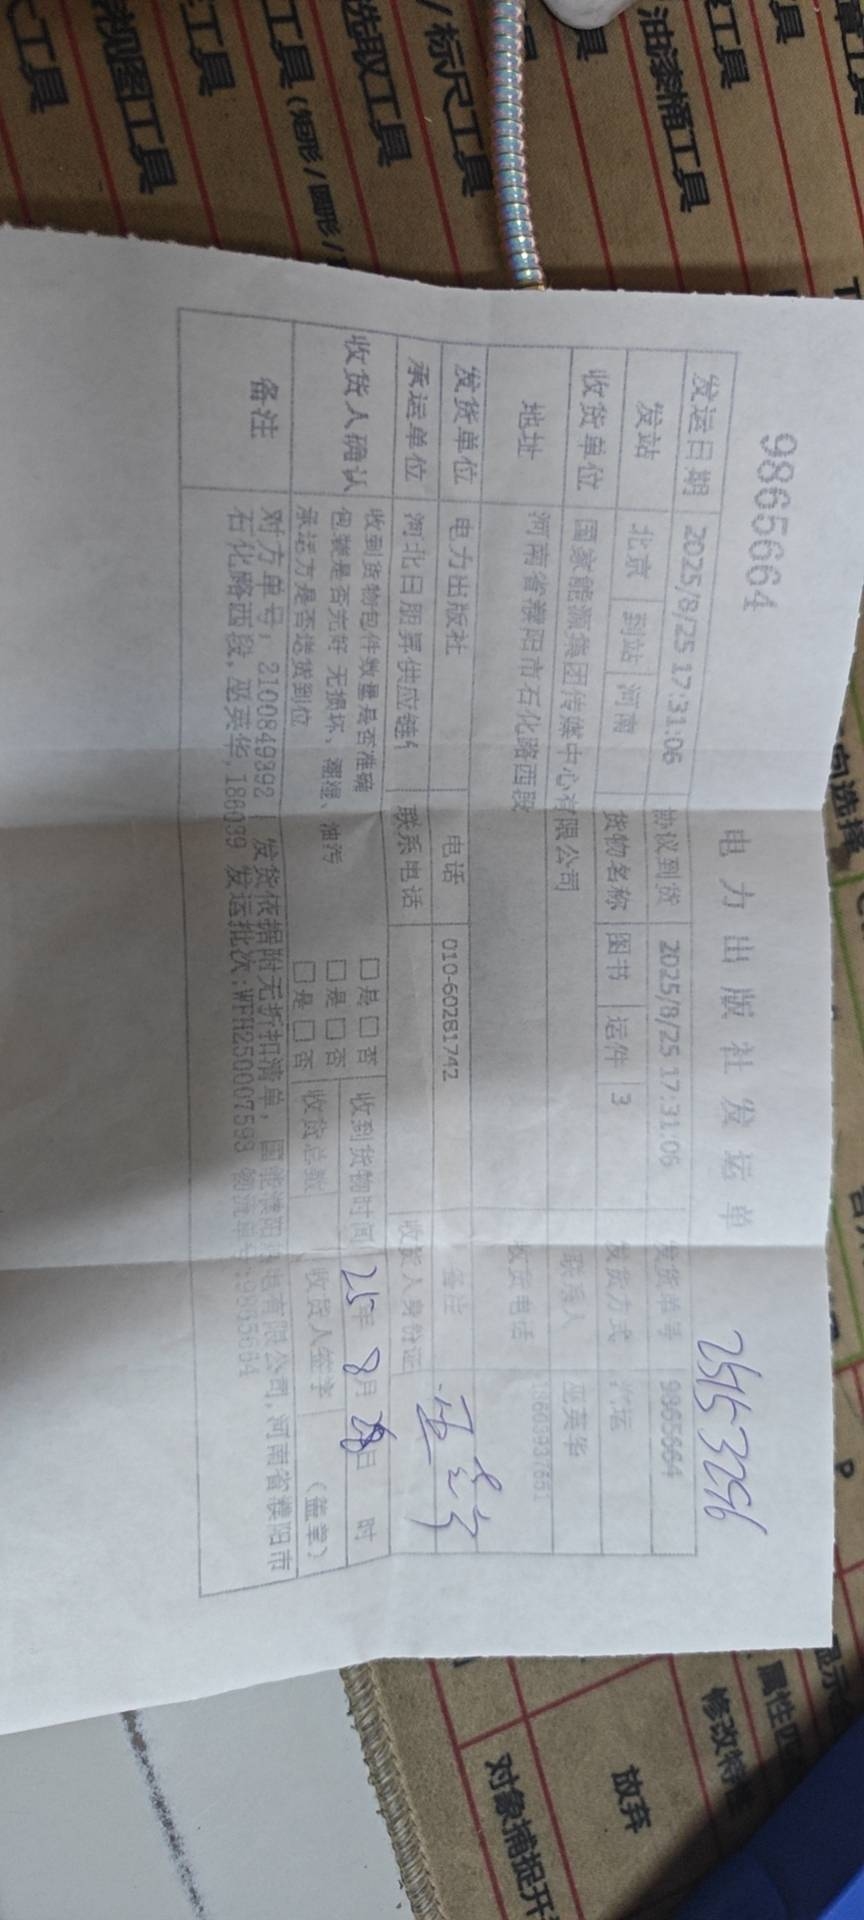 9865664
电力出版社发运单
25153256
发运日期 2025/8/25 17:31:06 协议到货 2025/8/25 17:31:06 发货单号 9865664
发站 北京 到站 河南 货物名称 图书 运件 3 发货方式
收货单位 国家能源集团传媒中心有限公司 联系人 巫英华
地址 河南省濮阳市石化路西段 收货电话
发货单位 电力出版社 电话 010-60281742 备注
承运单位 河北日朋昇供应链 联系电话 收货人身份证
收货人确认 收到货物包件数量是否准确 □是□否 收到货物时间 25年8月28日 时
包装是否完好 无损坏、潮湿、油污 □是□否
承运方是否送货到位 □是□否 收货总数 收货人签字 (盖章)
备注 对方单号:2100849392 发货依据附无折扣清单,国能濮阳 有限公司,河南省濮阳市
石化路西段,巫英华,186039 发运批次:WFH250007593 物流单号:9865664
工具
机图工具
工具
工具(矩形/圆形/
选取工具
/标尺工具
具
油漆桶工具
工具
具
向选择
属性匹
修改特性
放弃
对象捕捉开
P